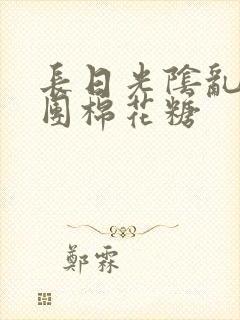 長日光陰亂
團棉花糖
鄭霖